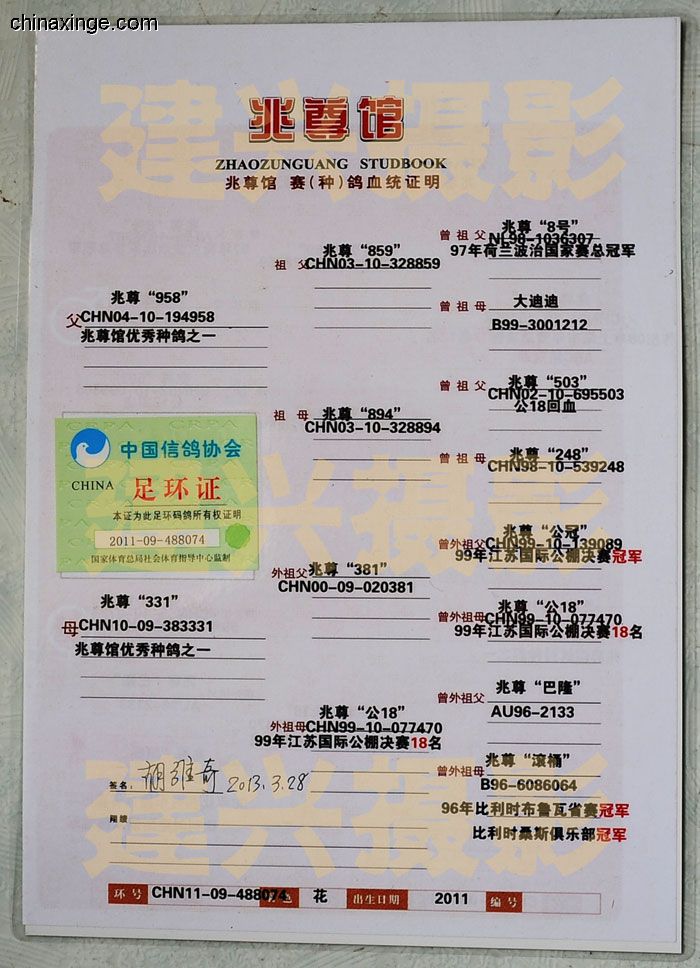 chinaxinge.com
建兴摄影
兆尊馆
ZHAOZUNGUANG STUDBOOK
兆尊馆 赛(种)鸽血统证明
曾祖父
兆尊“8号”
NL98-1036307
97年荷兰波治国家赛总冠军
祖父
兆尊“859”
CHN03-10-328859
父
兆尊“958”
CHN04-10-194958
兆尊馆优秀种鸽之一
曾祖母
大迪迪
B99-3001212
曾祖父
兆尊“503”
CHN02-10-695503
公18回血
祖母
兆尊“894”
CHN03-10-328894
曾祖母
兆尊“248”
CHN98-10-539248
CRPA CRPA
中国信鸽协会
CHINA 足环证
本证为此足环码鸽所有权证明
2011-09-488074
国家体育总局社会体育指导中心监制
建兴摄影
曾外祖父
兆尊“公冠”
CHN99-10-139089
99年江苏国际公棚决赛冠军
外祖父
兆尊“381”
CHN00-09-020381
母
兆尊“331”
CHN10-09-383331
兆尊馆优秀种鸽之一
曾外祖母
兆尊“公18”
CHN99-10-077470
99年江苏国际公棚决赛18名
曾外祖父
兆尊“巴隆”
AU96-2133
外祖母
兆尊“公18”
CHN99-10-077470
99年江苏国际公棚决赛18名
曾外祖母
兆尊“滚桶”
B96-6086064
96年比利时布鲁瓦省赛冠军
比利时桑斯俱乐部冠军
签名: 2013.3.28
建兴摄影
环号 CHN11-09-488074 花 出生日期 2011 编号